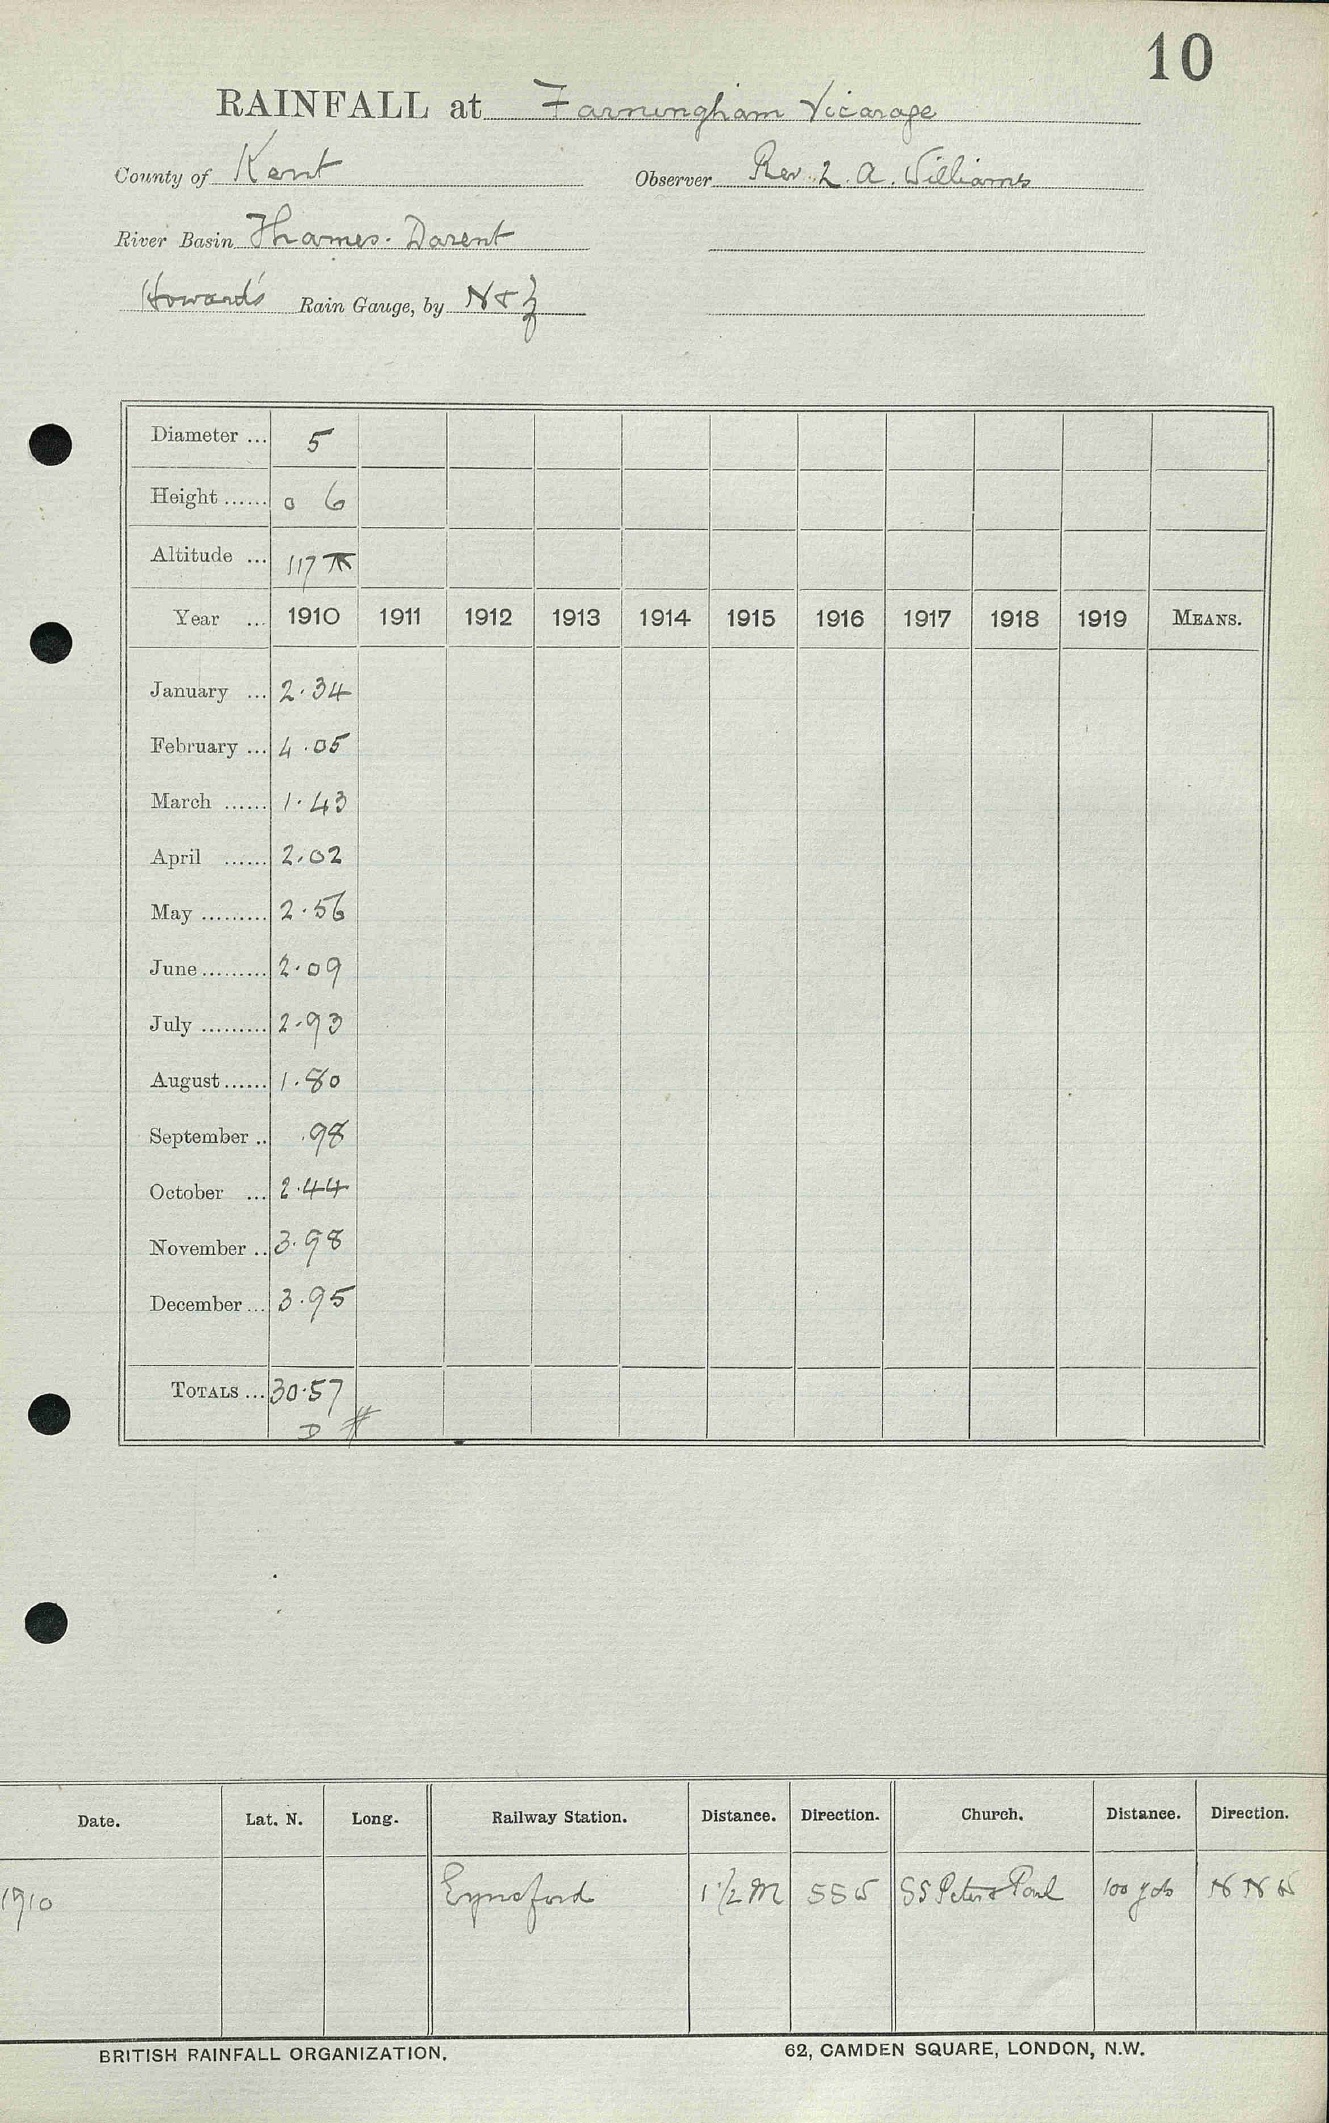 10
RAINFALL at Farningham Vicarage
County of Kent Observer Rev. L. A. Williams
River Basin Thames. Darent
Howard's Rain Gauge, by N & Z
Diameter ... 5
Height ...... 0 6
Altitude ... 117
Year ... 1910 1911 1912 1913 1914 1915 1916 1917 1918 1919 MEANS.
January ... 2.34
February ... 4.05
March ...... 1.43
April ...... 2.02
May ......... 2.56
June ......... 2.09
July ......... 2.93
August ...... 1.80
September .. .98
October ... 2.44
November .. 3.98
December ... 3.95
TOTALS ... 30.57
D #
Date. Lat. N. Long. Railway Station. Distance. Direction. Church. Distance. Direction.
1910 Eynsford 1 1/2 M SSW SS Peter & Paul 100 yds
BRITISH RAINFALL ORGANIZATION. 62, CAMDEN SQUARE, LONDON, N.W.